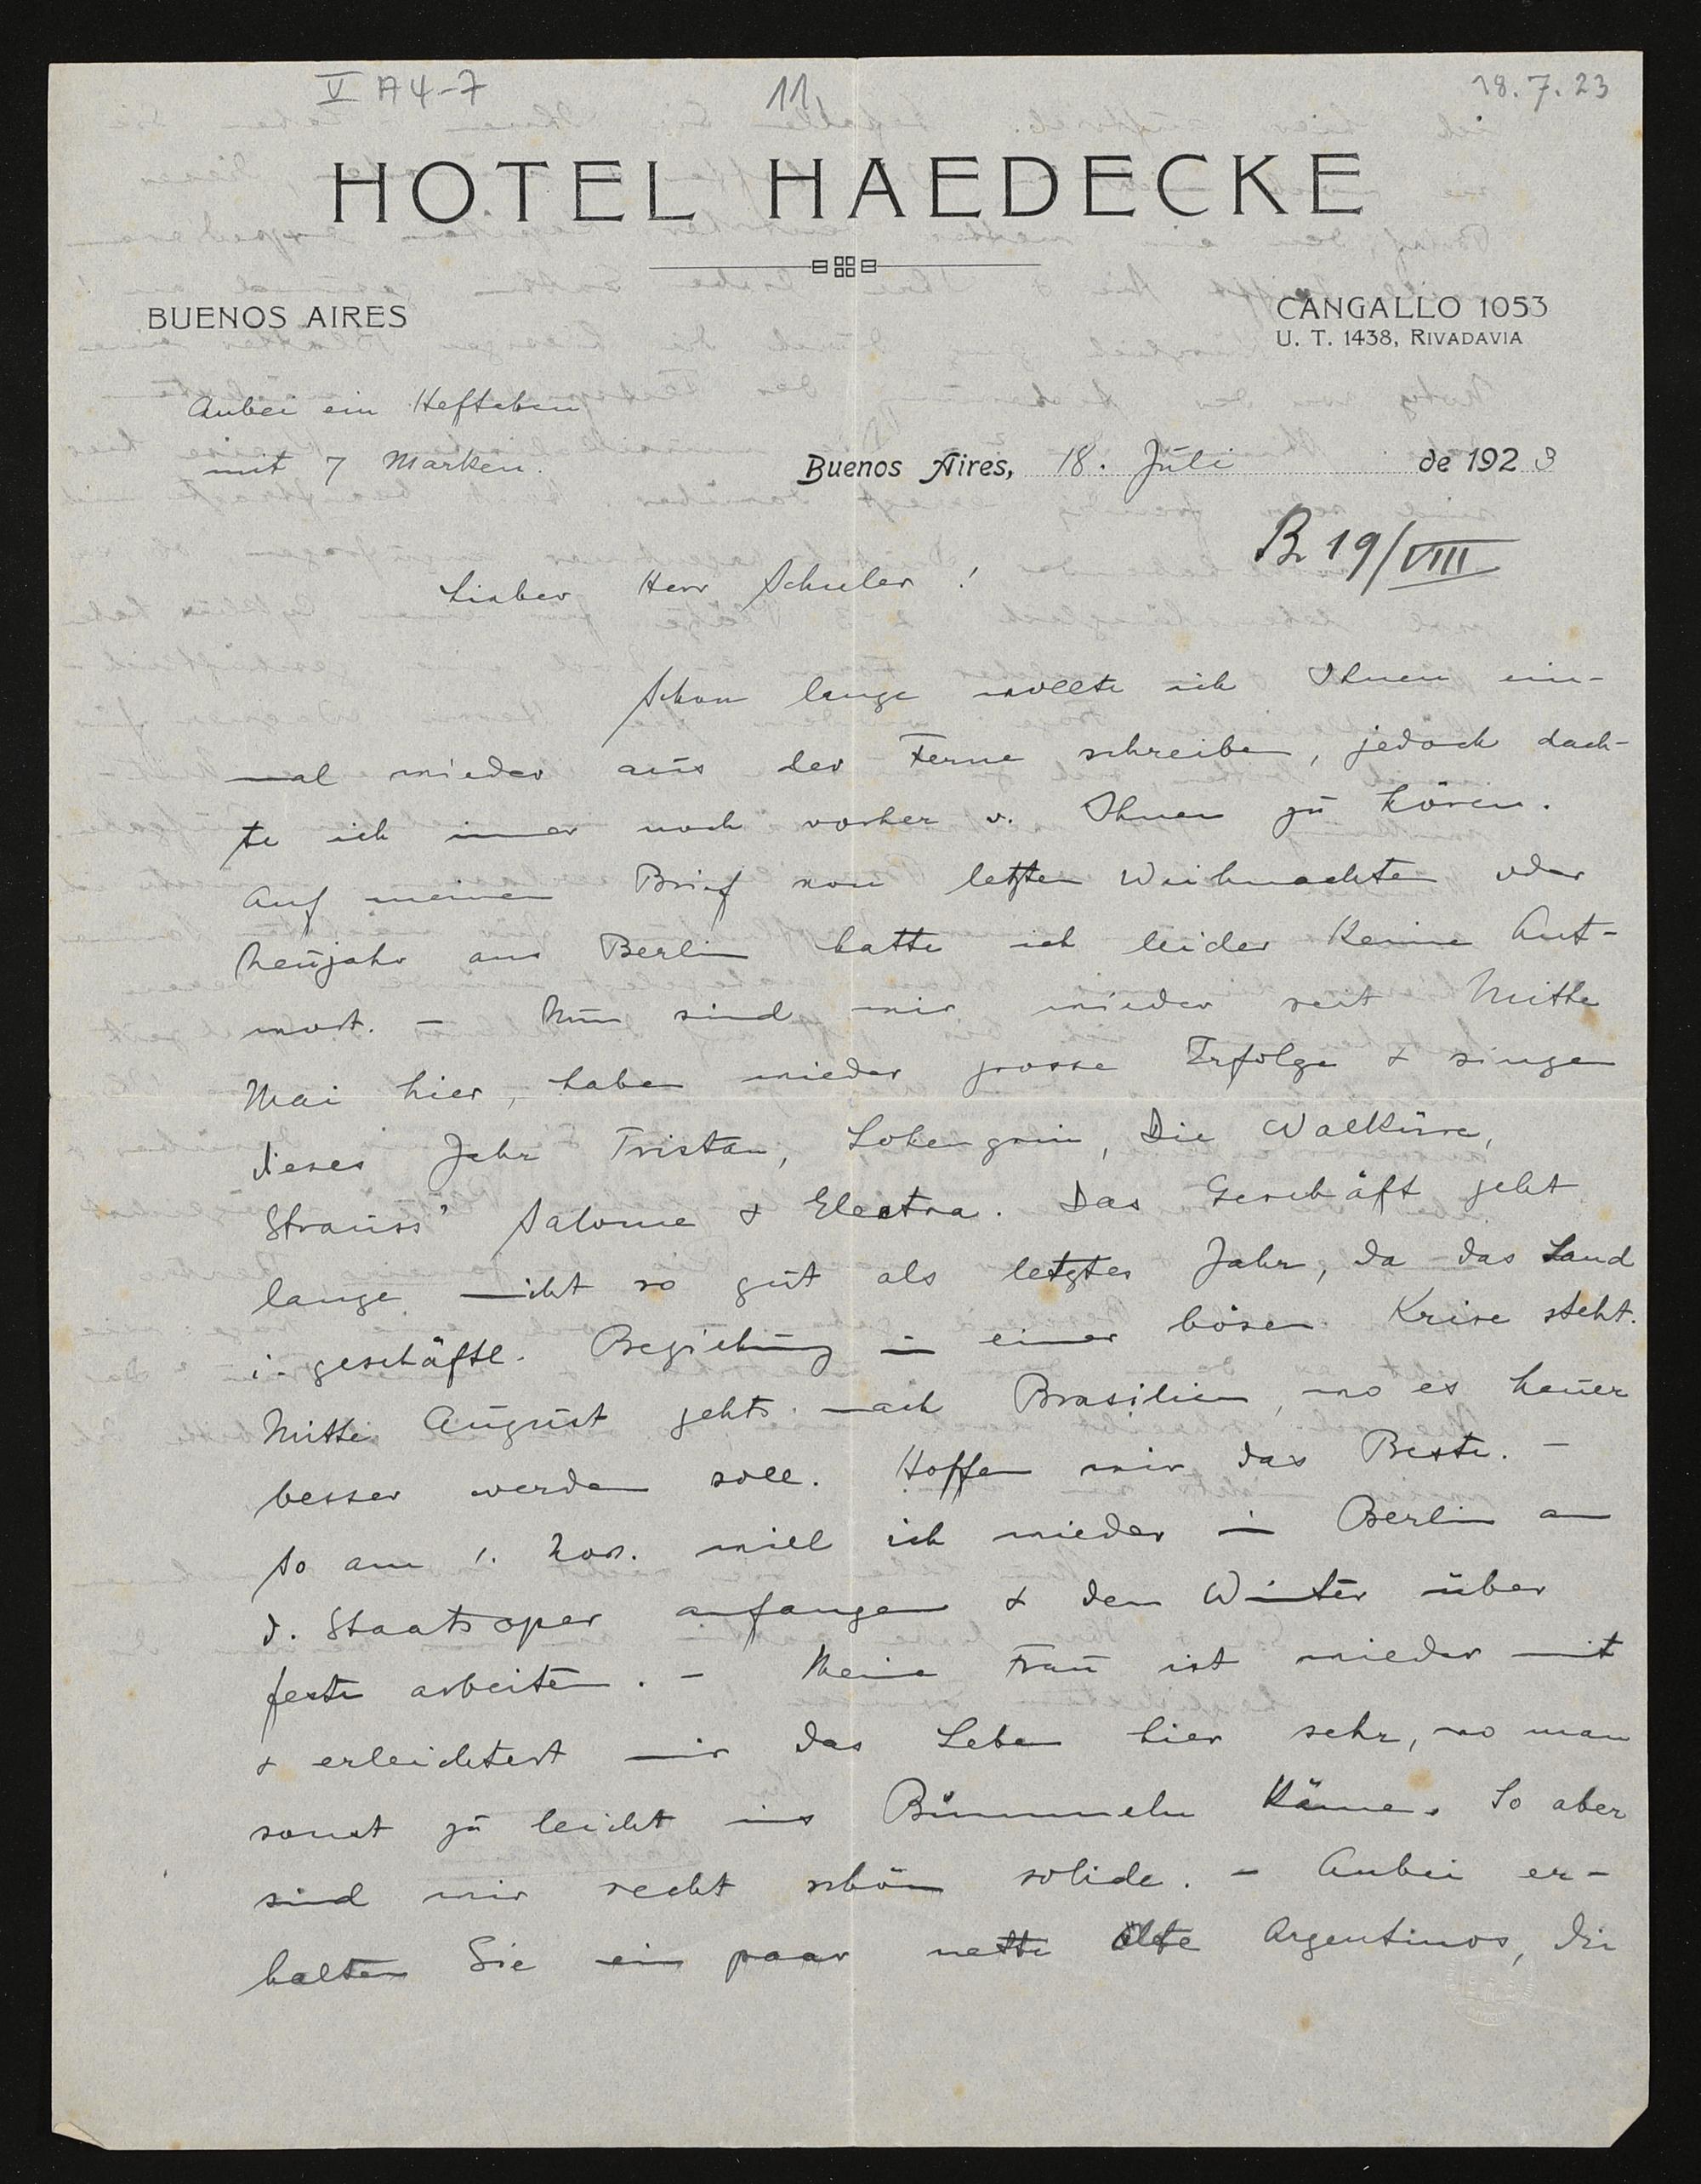 V A 4-7
11,
18.7.23
HOTEL HAEDECKE
BUENOS AIRES
CANGALLO 1053
U. T. 1438, RIVADAVIA
Anbei ein Heftchen
mit 7 Marken.
Buenos Aires, 18. Juli de 1923
B 19/VIII
Lieber Herr Schuler!
Schon lange wollte ich Ihnen ein-
mal wieder aus der Ferne schreiben, jedoch dach-
te ich immer noch vorher v. Ihnen zu hören.
Auf meinen Brief von letzten Weihnachten oder
Neujahr aus Berlin hatte ich leider keine Ant-
wort. - Nun sind wir wieder seit Mitte
Mai hier, haben wieder grosse Erfolge & singen
dieses Jahr Tristan, Lohengrin, Die Walküre,
Strauss' Salome & Electra. Das Geschäft geht
lange nicht so gut als letztes Jahr, da das Land
i. geschäftl. Beziehung in einer bösen Krise steht.
Mitte August gehts nach Brasilien, wo es heuer
besser werden soll. Hoffen wir das Beste. -
So am 1. Nov. will ich wieder in Berlin an
d. Staatsoper anfangen & den Winter über
feste arbeiten. - Meine Frau ist wieder mit
& erleichtert mir das Leben hier sehr, wo man
sonst zu leicht ins Bummeln käme. So aber
sind wir recht schön solide. - Anbei er-
halten Sie ein paar nette alte Argentinos, die